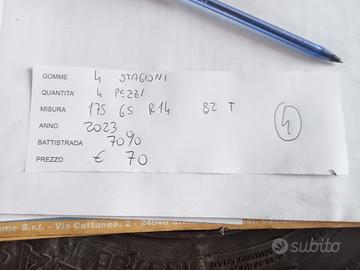 GOMME 4 STAGIONI
QUANTITA' 4 PEZZI
MISURA 175 65 R14 82 T
ANNO 2023
BATTISTRADA 70%
PREZZO € 70
4
ome S.r.l. - Via Cattaneo, 2 - 24040
subito